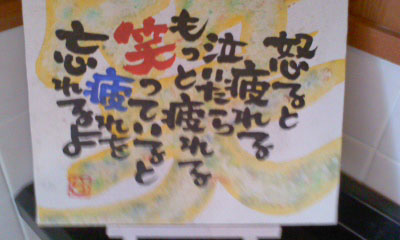 怒ると
疲れる
泣いたら
もっと疲れる
笑っていると
疲れを
忘れるよ